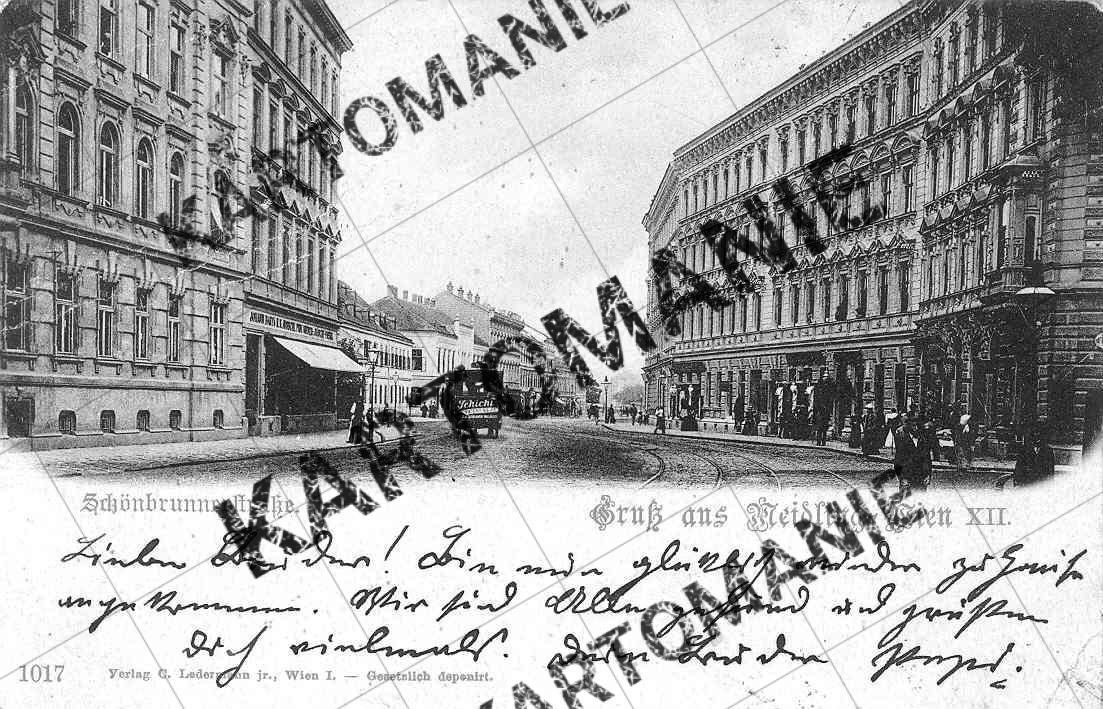 KARTOMANIE
KARTOMANIE
KARTOMANIE
KARTOMANIE
Schicht
Schönbrunnerstraße.
Gruß aus Meidling, Wien XII.
Lieber Bruder! Bin nun glücklich wieder zu Hause
angekommen. Wir sind Alle gesund und grüßen
Dich vielmals. Dein Bruder
1017 Verlag C. Ledermann jr., Wien I. — Gesetzlich deponirt.